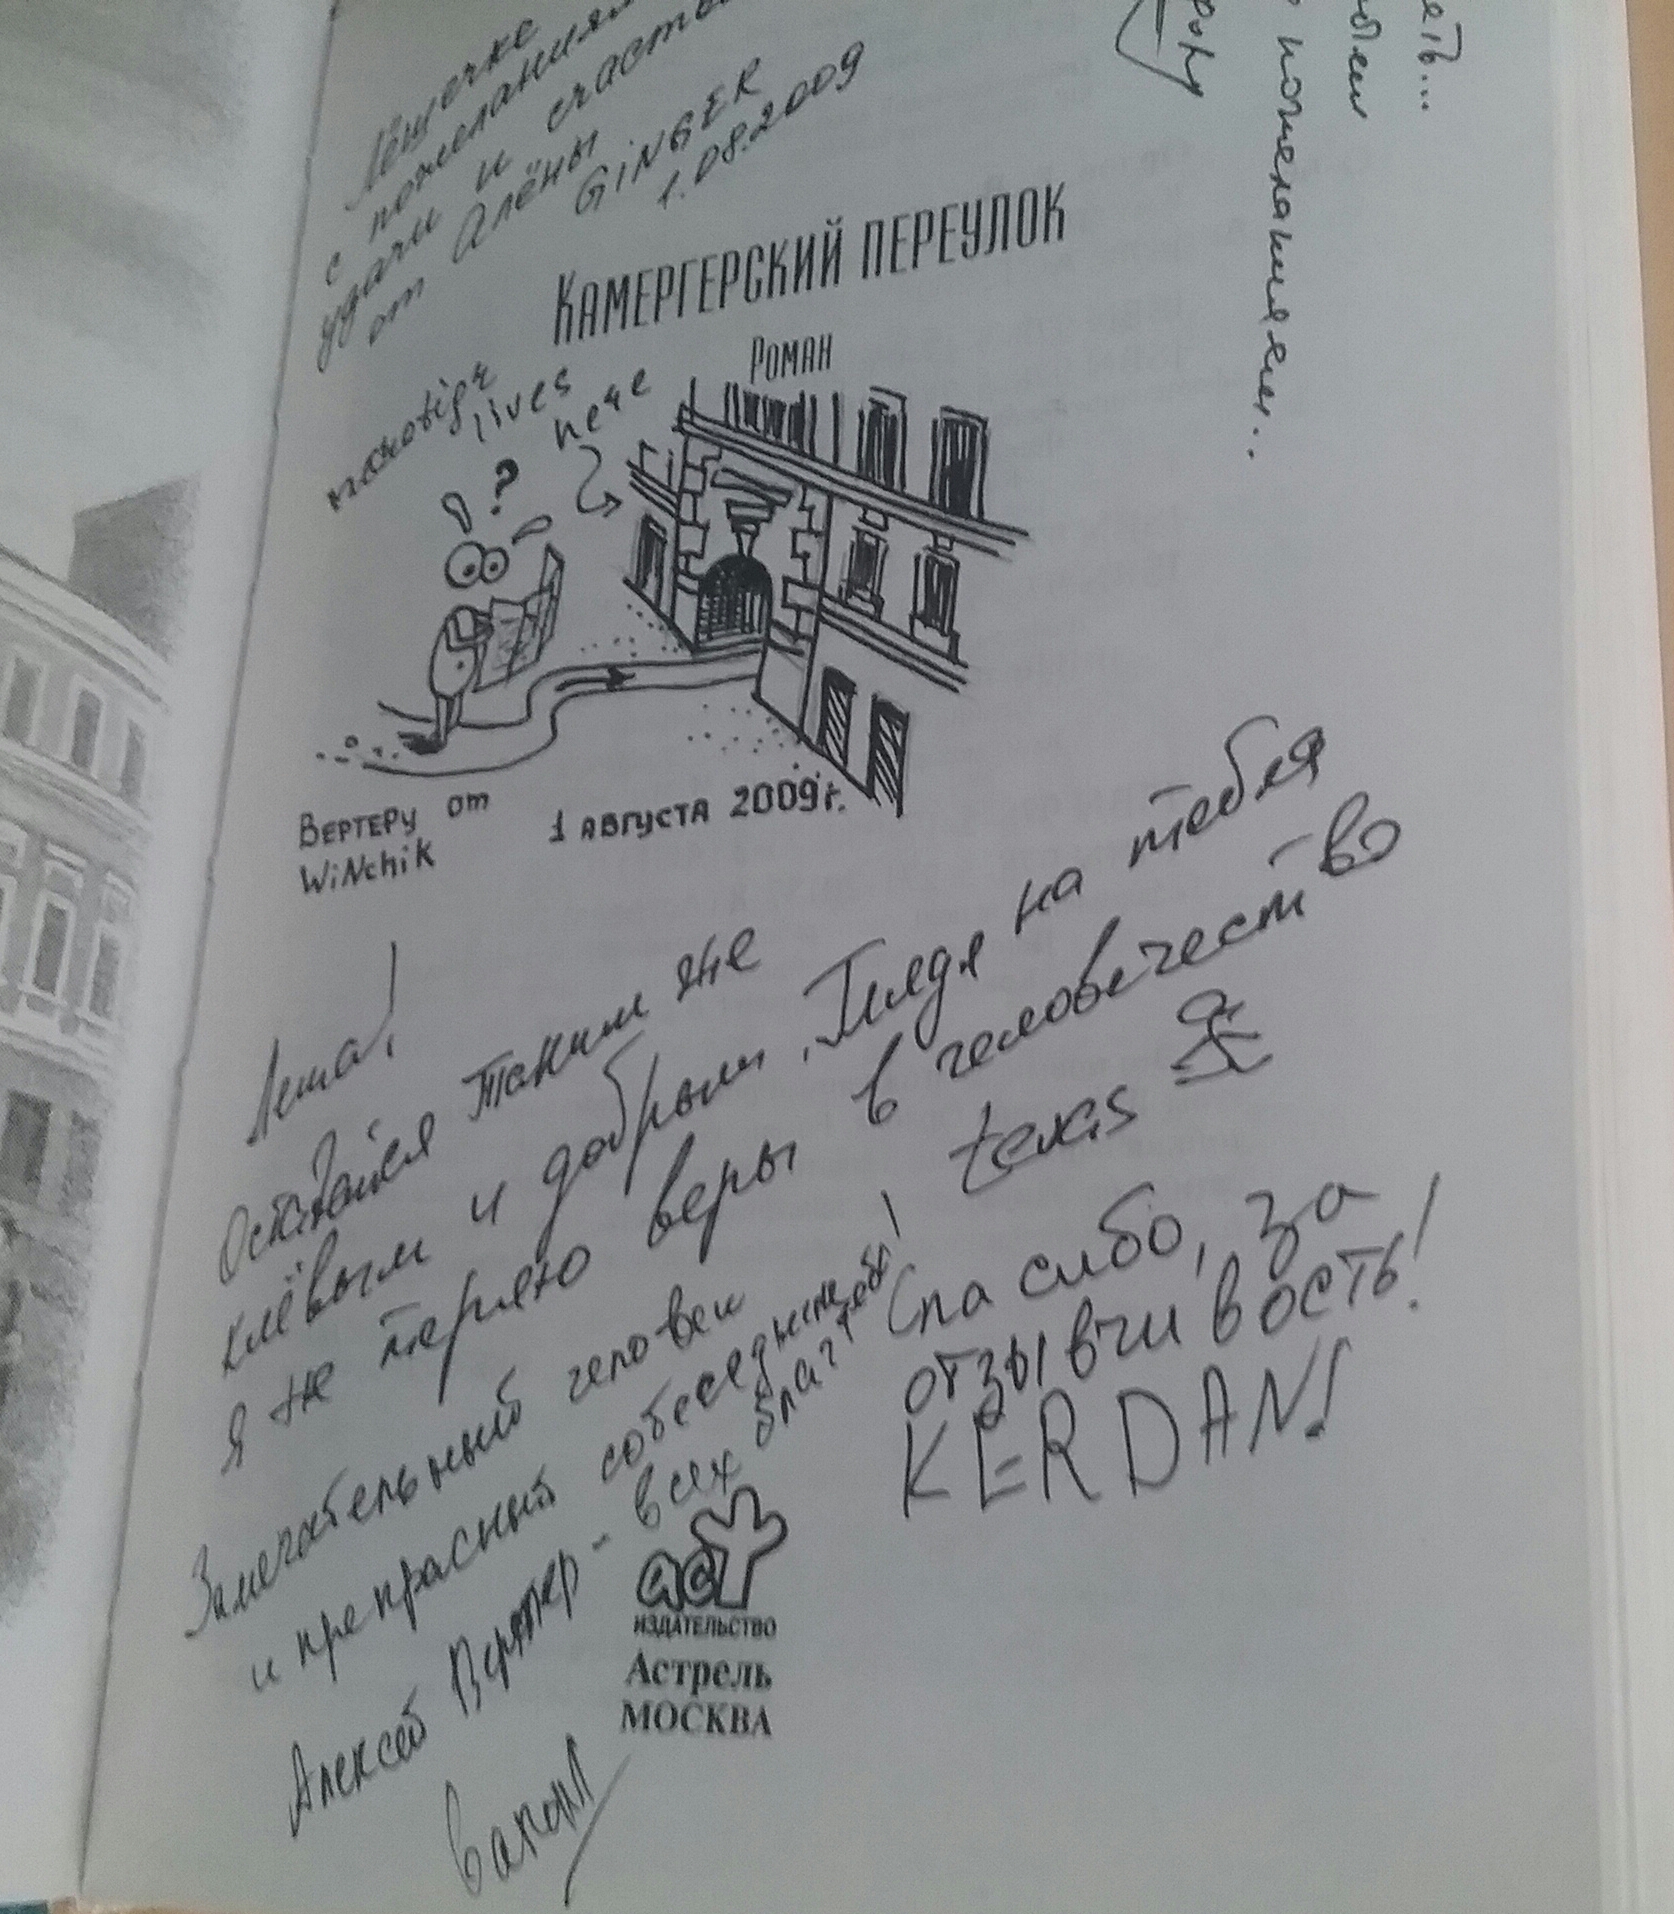 Лёшечке
с пожеланиями
удачи и счастья
от Алёны
GiNGER
1.08.2009
еть...
пожеланиями...
КАМЕРГЕРСКИЙ ПЕРЕУЛОК
РОМАН
lives
here
?
ВЕРТЕРУ от
WiNchiK
1 АВГУСТА 2009 г.
Леша!
Оставайся таким же
клёвым и добрым. Глядя на тебя
я не теряю веры в человечество
texas
Замечательный человек
и прекрасный собеседник
Алексей Вертер - всех благ тебе!
Спасибо, за
отзывчивость!
KERDAN!
аст
ИЗДАТЕЛЬСТВО
Астрель
МОСКВА